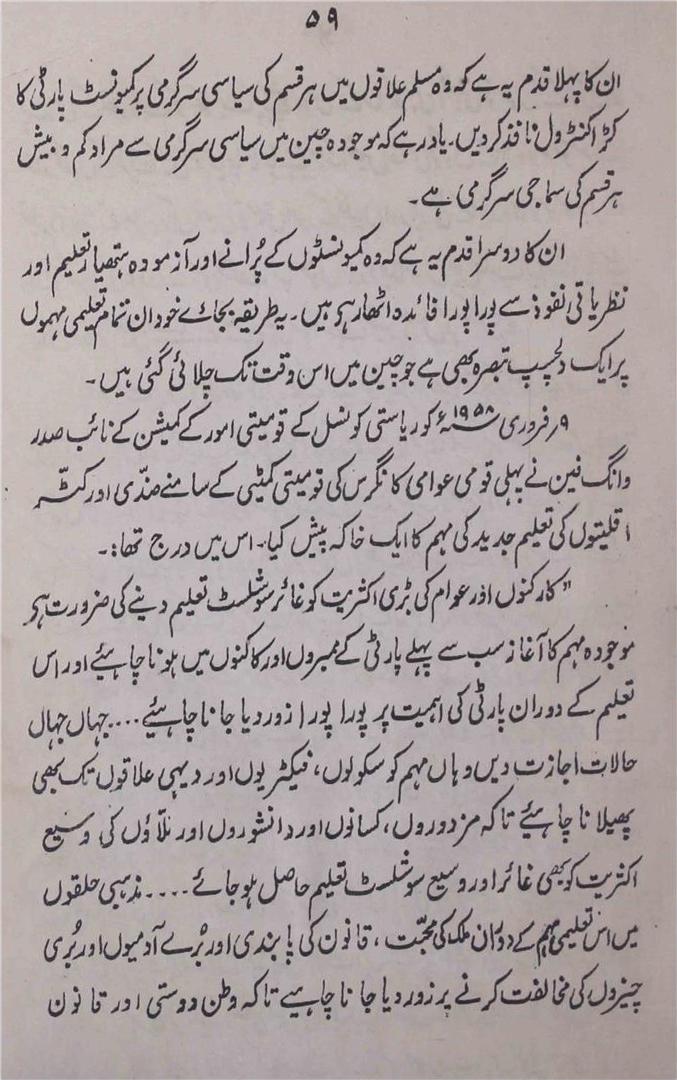 ۵۹
ان کا پہلا قدم یہ ہے کہ وہ مسلم علاقوں میں ہر قسم کی سیاسی سرگرمی پر کمیونسٹ پارٹی کا
کڑا کنٹرول نافذ کر دیں۔ یاد رہے کہ موجودہ چین میں سیاسی سرگرمی سے مراد کم و بیش
ہر قسم کی سماجی سرگرمی ہے۔
ان کا دوسرا قدم یہ ہے کہ وہ کمیونسٹوں کے پُرانے اور آزمودہ ہتھیار تعلیم اور
نظریاتی نفوذ سے پورا پورا فائدہ اٹھا رہے ہیں۔ یہ طریقہ بجائے خود ان تمام تعلیمی مہموں
پر ایک دلچسپ تبصرہ بھی ہے جو چین میں اس وقت تک چلائی گئی ہیں۔
۹ر فروری ۱۹۵۸ء کو ریاستی کونسل کے قومیتی امور کے کمیشن کے نائب صدر
وانگ فین نے پہلی قومی عوامی کانگرس کی قومیتی کمیٹی کے سامنے ضدّی اور کٹّر
اقلیتوں کی تعلیم جدید کی مہم کا ایک خاکہ پیش کیا۔ اس میں درج تھا:۔
”کارکنوں اور عوام کی بڑی اکثریت کو غائر سوشلسٹ تعلیم دینے کی ضرورت ہے
موجودہ مہم کا آغاز سب سے پہلے پارٹی کے ممبروں اور کارکنوں میں ہونا چاہئیے اور اس
تعلیم کے دوران پارٹی کی اہمیت پر پورا پورا زور دیا جانا چاہئیے .... جہاں جہاں
حالات اجازت دیں وہاں مہم کو سکولوں، فیکٹریوں اور دیہی علاقوں تک بھی
پھیلانا چاہئیے تاکہ مزدوروں، کسانوں اور دانشوروں اور ملّاؤں کی وسیع
اکثریت کو بھی غائر اور وسیع سوشلسٹ تعلیم حاصل ہو جائے .... مذہبی حلقوں
میں اس تعلیمی مہم کے دوران ملک کی محبّت، قانون کی پابندی اور بُرے آدمیوں اور بُری
چیزوں کی مخالفت کرنے پر زور دیا جانا چاہیے تاکہ وطن دوستی اور قانون